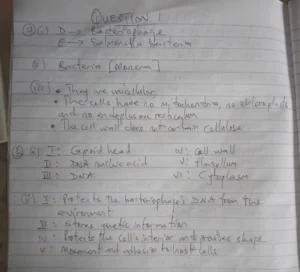 QUESTION 1
a) (i) D → Bacteriophage
E → Salmonella bacteria
(ii) Bacteria [Monera]
(iii) • They are unicellular
• The cells have no mitochondria, no chloroplasts
and no endoplasmic reticulum
• The cell wall does not contain cellulose
b) (i) I: Capsid head IV: Cell wall
II: DNA nucleic acid V: Flagellum
III: DNA VI: Cytoplasm
(ii) I: Protects the bacteriophage's DNA from the
environment
III: Stores genetic information
IV: Protects the cell's interior and provides shape
V: Movement and adhesion to host cells